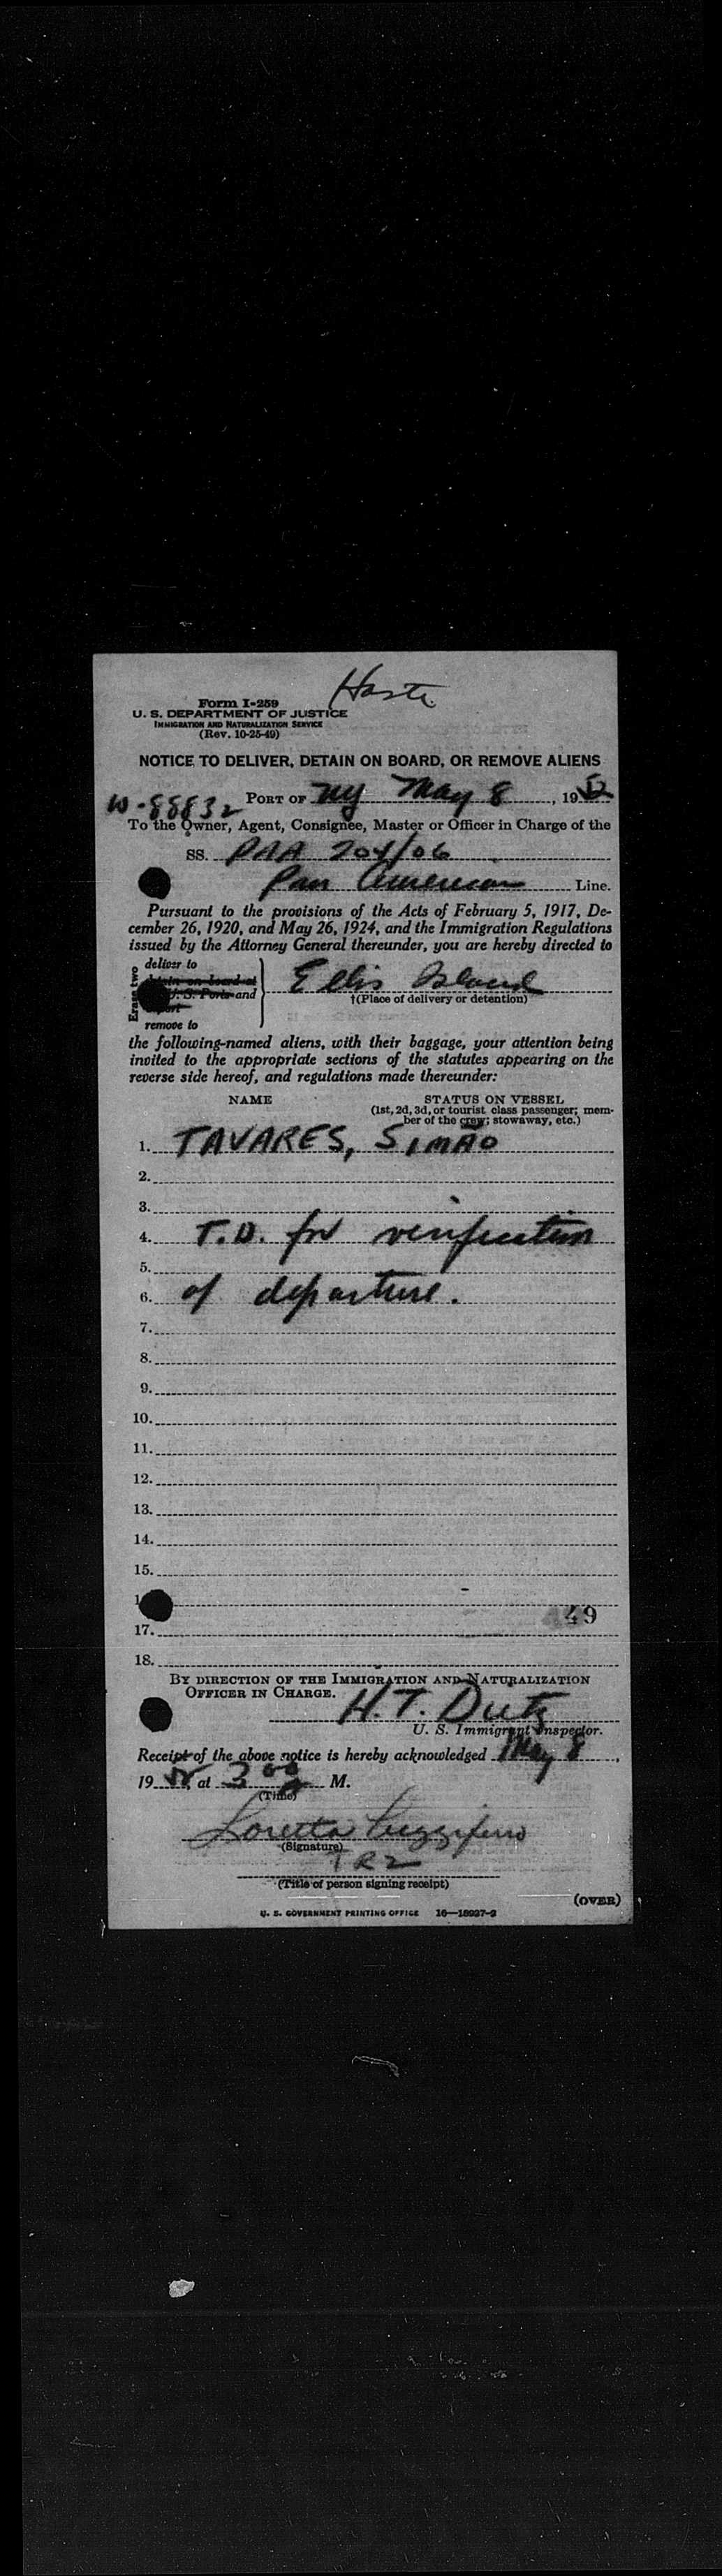 Form I-259
U. S. DEPARTMENT OF JUSTICE
IMMIGRATION AND NATURALIZATION SERVICE
(Rev. 10-25-49)
NOTICE TO DELIVER, DETAIN ON BOARD, OR REMOVE ALIENS
W-88832
PORT OF NY May 8, 1952
To the Owner, Agent, Consignee, Master or Officer in Charge of the
SS. PAA 204/06
Pan American Line.
Pursuant to the provisions of the Acts of February 5, 1917, De-
cember 26, 1920, and May 26, 1924, and the Immigration Regulations
issued by the Attorney General thereunder, you are hereby directed to
Erase two
deliver to
detain on board at
U. S. Ports and
remove to
Ellis Island
†(Place of delivery or detention)
the following-named aliens, with their baggage, your attention being
invited to the appropriate sections of the statutes appearing on the
reverse side hereof, and regulations made thereunder:
NAME STATUS ON VESSEL
(1st, 2d, 3d, or tourist class passenger; mem-
ber of the crew; stowaway, etc.)
1. TAVARES, SIMÃO
2.
3.
4. T.D. for verification
5.
6. of departure.
7.
8.
9.
10.
11.
12.
13.
14.
15.
49
17.
18.
BY DIRECTION OF THE IMMIGRATION AND NATURALIZATION
OFFICER IN CHARGE.
H. T.
U. S. Immigrant Inspector.
Receipt of the above notice is hereby acknowledged May 8,
19 52, at 3 00 M.
(Time)
Loretta
(Signature)
(Title of person signing receipt)
(OVER)
U. S. GOVERNMENT PRINTING OFFICE 16—18937-2